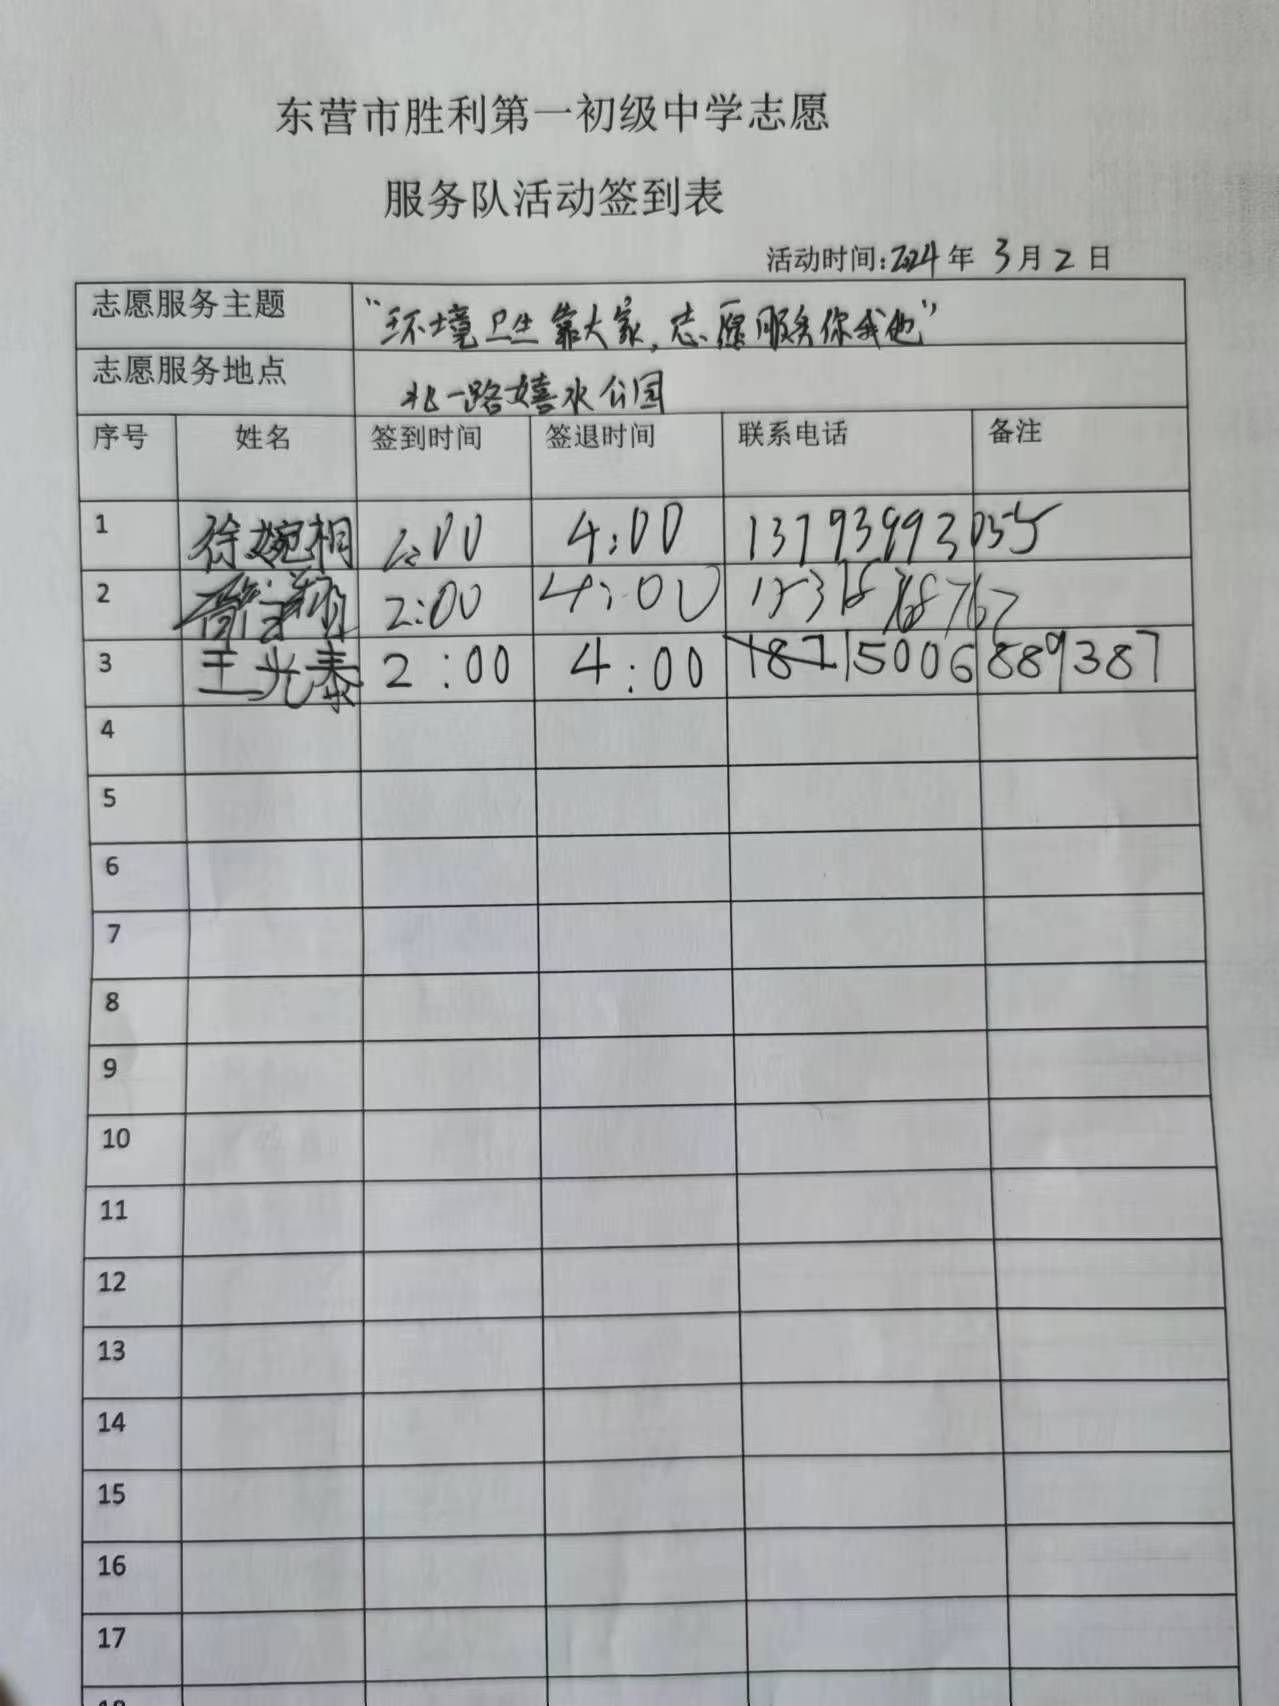 东营市胜利第一初级中学志愿
服务队活动签到表
活动时间:2024年 3月2日
志愿服务主题 “环境卫生靠大家,志愿服务你我他”
志愿服务地点 北一路嬉水公园
序号 姓名 签到时间 签退时间 联系电话 备注
1 徐婉桐 2:00 4:00 13793993055
2 2:00 4:00
3 王光泰 2:00 4:00 15006889387
4
5
6
7
8
9
10
11
12
13
14
15
16
17
18